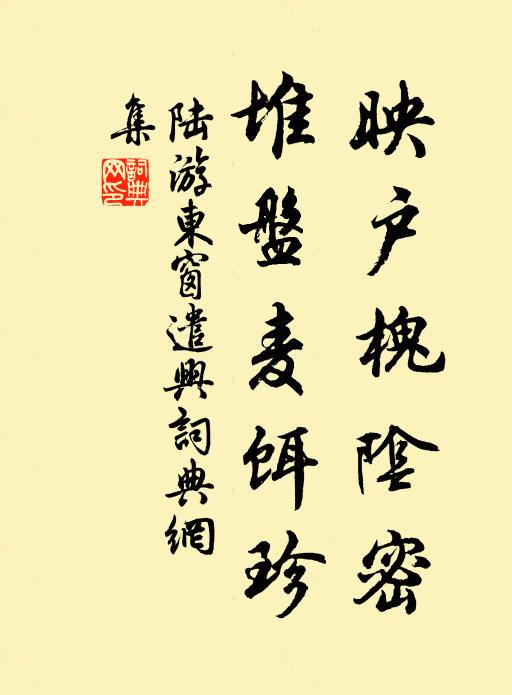 映户槐陰密
堆盤麦餌珍
陆游東窗遣興詞典網
集
詞典
网印